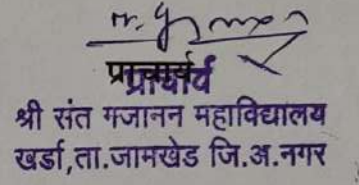 प्राचार्य
श्री संत गजानन महाविद्यालय
खर्डा,ता.जामखेड जि.अ.नगर